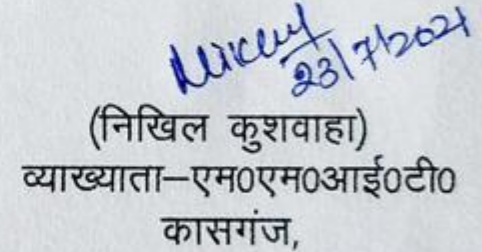 23/7/2021
(निखिल कुशवाहा)
व्याख्याता–एम0एम0आई0टी0
कासगंज,